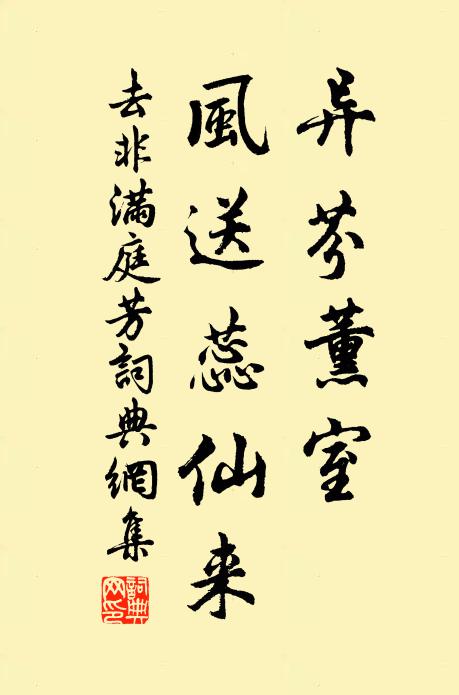 异芬薰室
風送蕊仙来
去非滿庭芳詞典網集
詞典网印